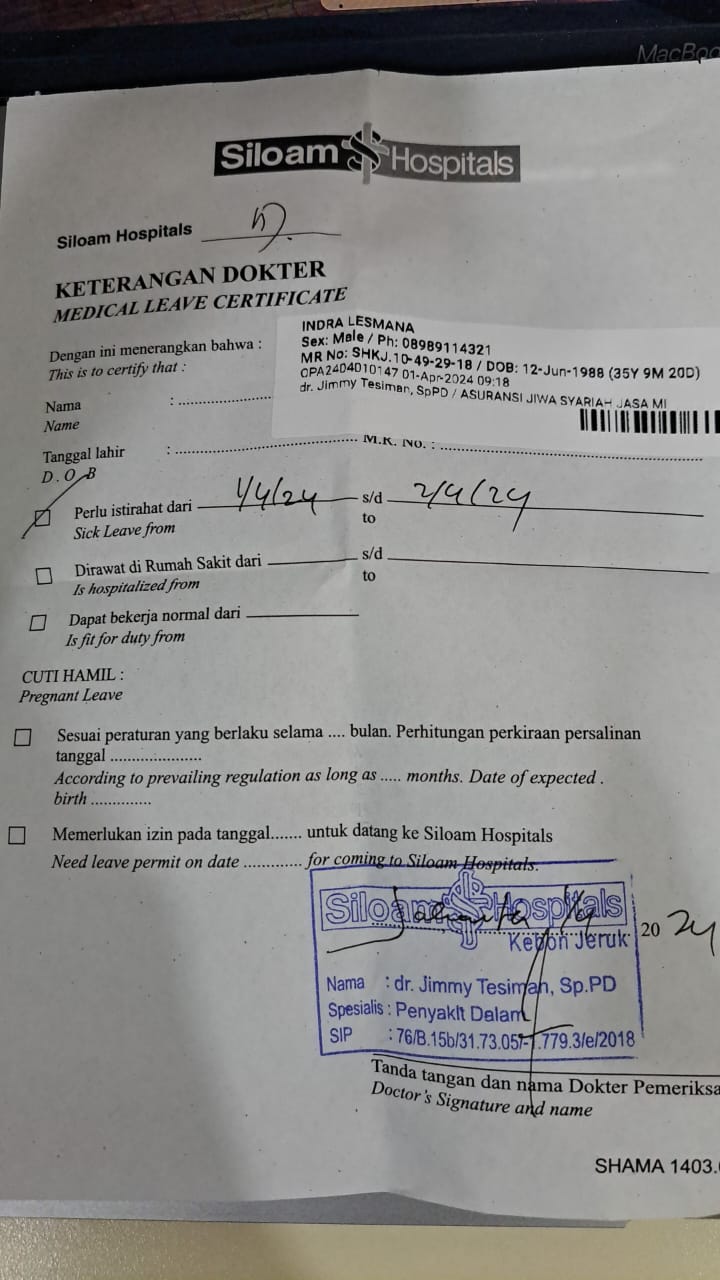 MacBoo
Siloam Hospitals
Siloam Hospitals
KETERANGAN DOKTER
MEDICAL LEAVE CERTIFICATE
Dengan ini menerangkan bahwa :
This is to certify that :
INDRA LESMANA
Sex: Male / Ph: 08989114321
MR No: SHKJ.10-49-29-18 / DOB: 12-Jun-1988 (35Y 9M 20D)
OPA2404010147 01-Apr-2024 09:18
dr. Jimmy Tesiman, SpPD / ASURANSI JIWA SYARIAH JASA MI
Nama :
Name
Tanggal lahir : M.R. No. :
D.O.B
Perlu istirahat dari 1/4/24 s/d 2/4/24
Sick Leave from to
Dirawat di Rumah Sakit dari s/d
Is hospitalized from to
Dapat bekerja normal dari
Is fit for duty from
CUTI HAMIL :
Pregnant Leave
Sesuai peraturan yang berlaku selama .... bulan. Perhitungan perkiraan persalinan
tanggal ......................
According to prevailing regulation as long as ..... months. Date of expected .
birth ..............
Memerlukan izin pada tanggal....... untuk datang ke Siloam Hospitals
Need leave permit on date ............. for coming to Siloam Hospitals.
Siloam Hospitals
Kebon Jeruk
Jakarta 1/4 2024
Nama : dr. Jimmy Tesiman, Sp.PD
Spesialis : Penyakit Dalam
SIP : 76/B.15b/31.73.05/-1.779.3/e/2018
Tanda tangan dan nama Dokter Pemeriksa
Doctor's Signature and name
SHAMA 1403.